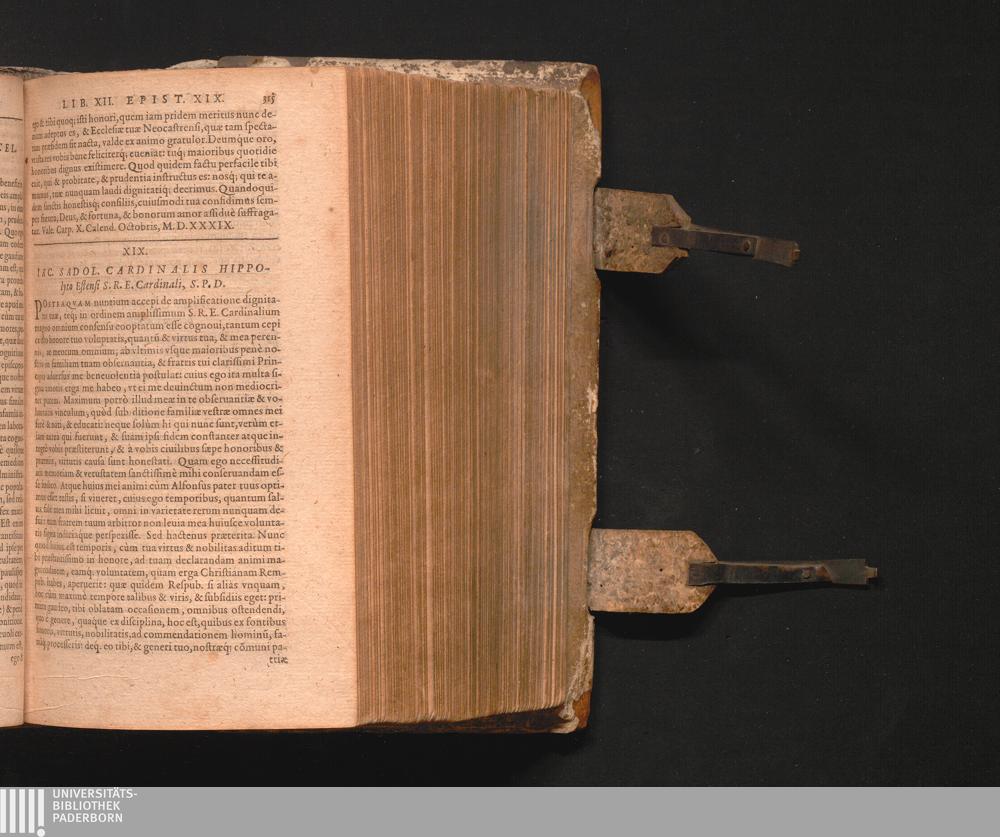 LIB. XII. EPIST. XIX. 315
ego & tibi quoq; isti honori, quem iam pridem meritus nunc de-
mum adeptus es, & Ecclesiæ tuæ Neocastrensi, quæ tam specta-
tum præsidem sit nacta, valde ex animo gratulor. Deumq́ue oro,
vt ista res vobis bene feliciterq; eueniat: tuq; maioribus quotidie
honoribus dignus existimere. Quod quidem factu perfacile tibi
erit, qui & probitate, & prudentia instructus es: nosq; qui te a-
mamus, tuæ nunquam laudi dignitatiq; deerimus. Quandoqui-
dem sanctis honestisq; consiliis, cuiusmodi tua confidimus sem-
per futura, Deus, & fortuna, & bonorum amor assiduè suffraga-
tur. Vale. Carp. X. Calend. Octobris, M. D. XXXIX.
XIX.
IAC. SADOL. CARDINALIS HIPPO-
lyto Estensi S. R. E. Cardinali, S. P. D.
POSTEAQVAM nuntium accepi de amplificatione dignita-
tis tuæ, teq; in ordinem amplissimum S. R. E. Cardinalium
magno omnium consensu cooptatum esse cognoui, tantum cepi
ex isto honore tuo voluptatis, quantũ & virtus tua, & mea peren-
nis, ac meorum omnium, ab vltimis vsque maioribus penè no-
stris in familiam tuam obseruantia, & fratris tui clarissimi Prin-
cipis aduersus me beneuolentia postulat: cuius ego ita multa si-
gna amoris erga me habeo, vt ei me deuinctum non mediocri-
ter putem. Maximum porrò illud meæ in te obseruantiæ & vo-
luntatis vinculum, quòd sub ditione familiæ vestræ omnes mei
ferè & nati, & educati: neque solùm hi qui nunc sunt, verùm et-
iam antea qui fuerunt, & suam ipsi fidem constanter atque in-
tegrè vobis præstiterunt, & à vobis ciuilibus sæpe honoribus &
præmiis, virtutis causa sunt honestati. Quam ego necessitudi-
nis memoriam & vetustatem sanctissimè mihi conseruandam es-
se iudico. Atque huius mei animi cùm Alfonsus pater tuus opti-
mus esset testis, si viueret, cuius ego temporibus, quantum sal-
ua fide mea mihi licuit, omni in varietate rerum nunquam de-
fui: tum fratrem tuum arbitror non leuia mea huiusce volunta-
tis signa indiciaque perspexisse. Sed hactenus præterita. Nunc
quod huius est temporis, cùm tua virtus & nobilitas aditum ti-
bi præstantissimo in honore, ad tuam declarandam animi ma-
gnitudinem, eamq. voluntatem, quam erga Christianam Rem-
pub. habes, aperuerit: quæ quidem Respub. si aliàs vnquam,
hoc cùm maximè tempore talibus & viris, & subsidiis eget: pri-
mum gaudeo, tibi oblatam occasionem, omnibus ostendendi,
quo è genere, quaque ex disciplina, hoc est, quibus ex fontibus
honoris, virtutis, nobilitatis, ad commendationem hominũ, fa-
mãq; processeris: deq. eo tibi, & generi tuo, nostræq; cõmuni pa-
triæ
UNIVERSITÄTS-
BIBLIOTHEK
PADERBORN